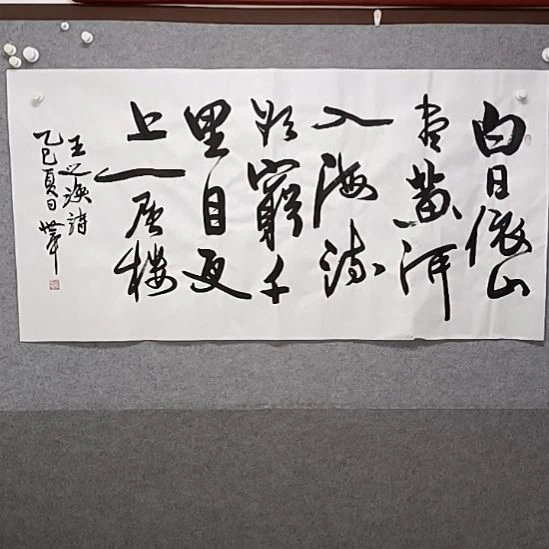 白日依山
尽黄河
入海流
欲窮千
里目更
上一层楼
王之涣詩
乙巳夏日